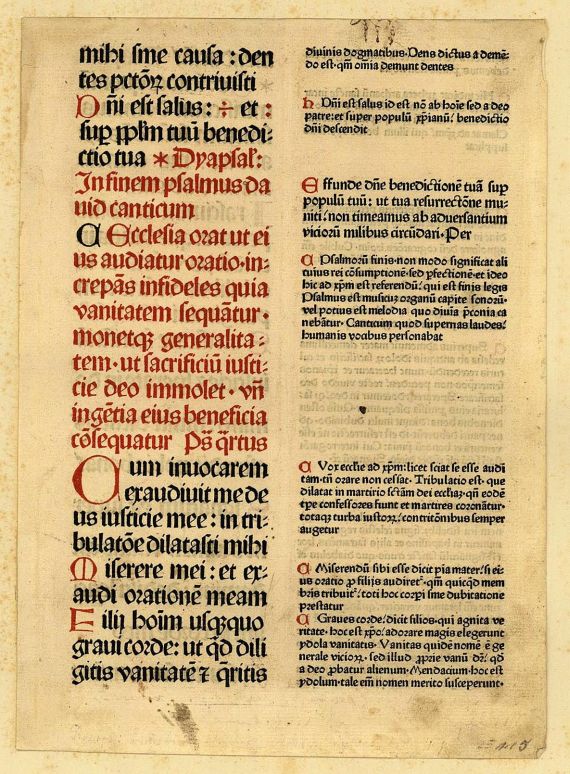 mihi sine causa : den
tes pctōꝝ contrivisti
Dñi est salus : ÷ et :
sup ꝓplm tuū benedi-
ctio tua * Dyapsal:
In finem psalmus da
uid canticum
ᑕ Ecclesia orat ut ei
us audiatur oratio·in-
crepās infideles quia
vanitatem sequātur·
monetqꝫ generalita-
tem·ut sacrificiū iusti-
cie deo immolet·vñ
ingētia eius beneficia
cōsequatur Ps̄ q̄rtus
Cum inuocarem
exaudiuit me de
us iusticie mee : in tri-
bulatōe dilatasti mihi
Miserere mei : et ex-
audi orationē meam
Filij hoīm usqꝫquo
graui corde : ut qd dili
gitis vanitatē ⁊ q̄ritis
diuinis dogmatibus·Dens dictus a demē-
do est·qm̄ om̄ia demunt dentes
Dñi est salus id est nō ab hoīe sed a deo
patre: et super populū xp̄ianū: benedictio
dñi descendit
Effunde dñe benedictionē tuā sup
populū tuū: ut tua resurrectōne mu-
niti: non timeamus ab aduersantium
viciorū milibus circūdari· Per
ᑕ Psalmorū finis·non modo significat ali
cuius rei cōsumptionē·sed ꝑfectionē·et ideo
hic ad xp̄m est referendū: qui est finis legis
Psalmus est musicuꝫ organū capite sonorū·
vel potius est melodia quo diuīa p̄conia ca
nebātur· Canticum quod supernas laudes:
humanis vocibus personabat
ᑕ Vox eccl̄ie ad xp̄m: licet sciat se esse audi
tam·tn̄ orare non cessat· Tribulatio est·que
dilatat in martirio sc̄tām dei eccl̄iaꝫ·qn̄ eodē
tp̄e confessores fiunt et martires coronātur·
totaqꝫ turba iustoꝝ: contritōnibus semper
augetur
ᑕ Miserendū sibi esse dicit pia mater: si ei-
us oratio ꝓ filijs audiret᷑·qm̄ quicqd mem
bris tribuit᷑: toti hoc corpi sine dubitatione
prestatur
ᑕ Graues corde: dicit filios·qui agnita ve
ritate·hoc est xp̄o: adorare magis elegerunt
ydola vanitatis· Vanitas quidē nomē ē ge
nerale vicioꝝ·sed illud ꝓprie vanū dr̄: qd
a deo ꝓbatur alienum·Mendacium·hoc est
ydolum·tale em̄ nomen merito susceperunt·